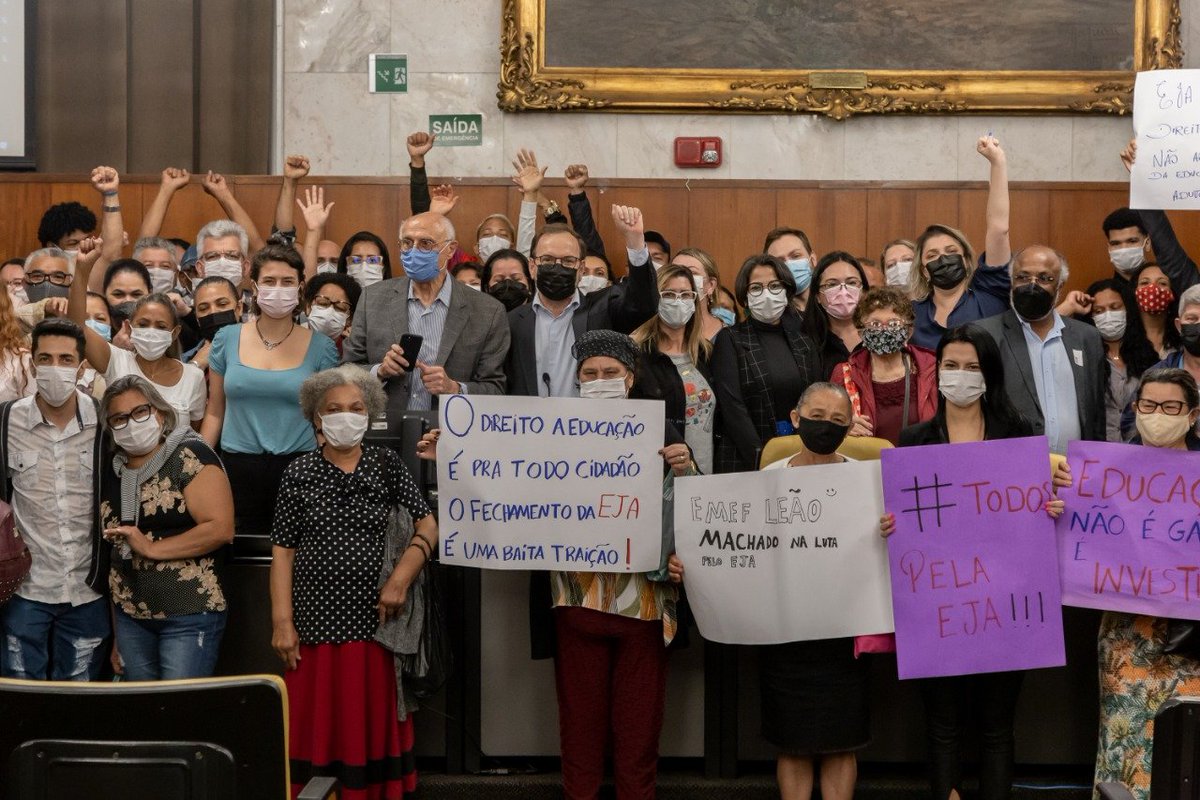 SAÍDA
DE EMERGÊNCIA
EJA
DIREIT
NÃO A
DA EDUC
ADU
O DIREITO A EDUCAÇÃO
É PRA TODO CIDADÃO
O FECHAMENTO DA EJA
É UMA BAITA TRAIÇÃO!
EMEF LEÃO
MACHADO NA LUTA
PELO EJA
# TODOS
PELA
EJA!!!
EDUCAÇ
NÃO É GA
É
INVESTI